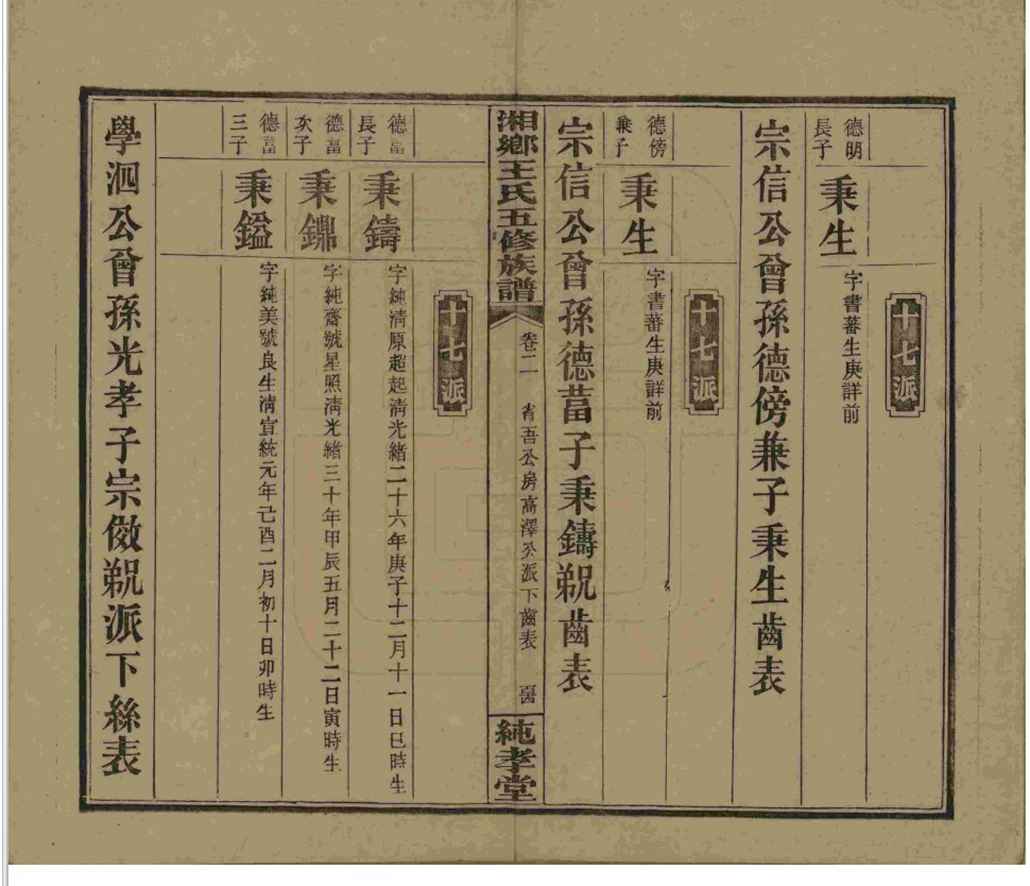 十七派
德明
長子
秉生
字書蕃生庚詳前
宗信公曾孫德傍兼子秉生齒表
十七派
德傍
兼子
秉生
字書蕃生庚詳前
宗信公曾孫德葍子秉鑄䚻齒表
湘鄉王氏五修族譜
卷二
省吾公房高澤公派下齒表
純孝堂
十七派
德葍
長子
秉鑄
字純清原超起清光緒二十六年庚子十二月十一日巳時生
德葍
次子
秉鼐
字純齋號星照清光緒三十年甲辰五月二十二日寅時生
德葍
三子
秉鎰
字純美號良生清宣統元年己酉二月初十日卯時生
學泗公曾孫光孝子宗傚派下絲表